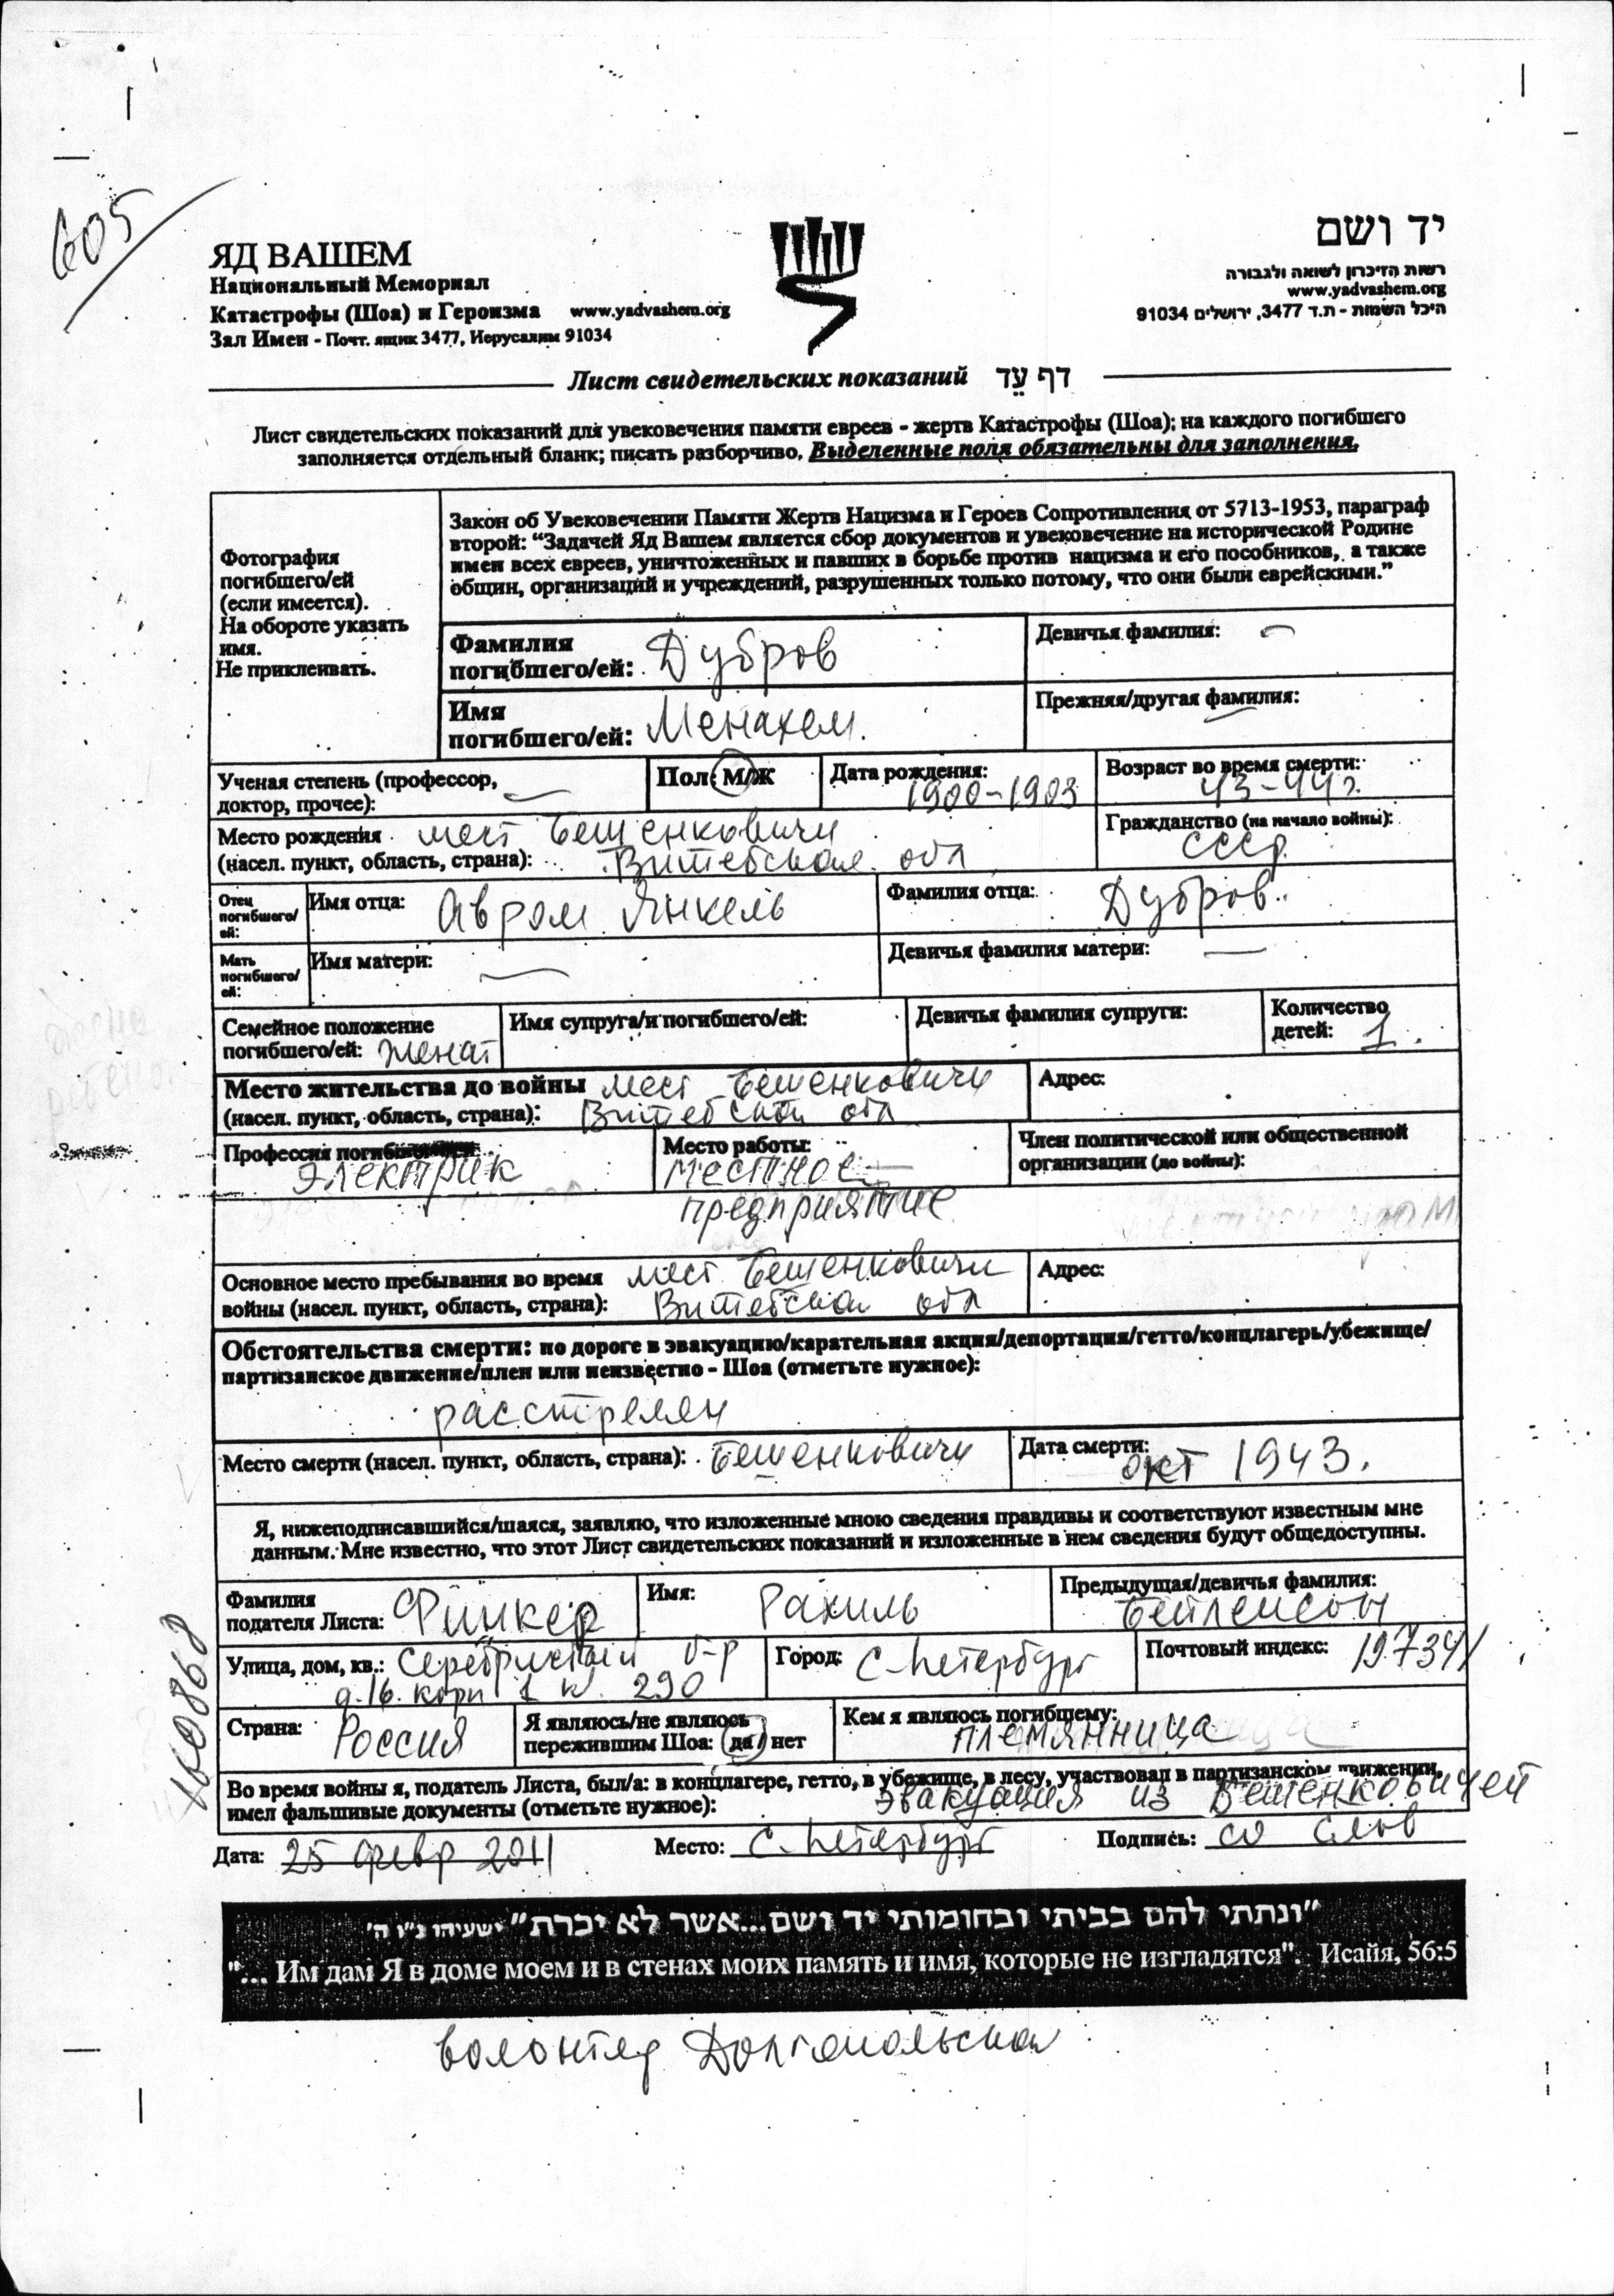 605
ЯД ВАШЕМ
Национальный Мемориал
Катастрофы (Шоа) и Героизма www.yadvashem.org
Зал Имен - Почт. ящик 3477, Иерусалим 91034
יד ושם
רשות הזיכרון לשואה ולגבורה
www.yadvashem.org
היכל השמות - ת.ד 3477, ירושלים 91034
Лист свидетельских показаний דף עֵד
Лист свидетельских показаний для увековечения памяти евреев - жертв Катастрофы (Шоа); на каждого погибшего
заполняется отдельный бланк; писать разборчиво. Выделенные поля обязательны для заполнения.
Фотография
погибшего/ей
(если имеется).
На обороте указать
имя.
Не приклеивать.
Закон об Увековечении Памяти Жертв Нацизма и Героев Сопротивления от 5713-1953, параграф
второй: “Задачей Яд Вашем является сбор документов и увековечение на исторической Родине
имен всех евреев, уничтоженных и павших в борьбе против нацизма и его пособников, а также
общин, организаций и учреждений, разрушенных только потому, что они были еврейскими.”
Фамилия
погибшего/ей: Дубров
Девичья фамилия: —
Имя
погибшего/ей: Менахем.
Прежняя/другая фамилия: —
Ученая степень (профессор,
доктор, прочее): —
Пол: М/Ж
Дата рождения:
1900-1903
Возраст во время смерти:
43-44 г.
Место рождения мест Бешенковичи
(насел. пункт, область, страна): Витебская обл
Гражданство (на начало войны):
СССР
Отец
погибшего/
ей:
Имя отца: Авром Янкель
Фамилия отца: Дубров.
Мать
погибшего/
ей:
Имя матери: —
Девичья фамилия матери: —
Семейное положение
погибшего/ей: женат
Имя супруга/и погибшего/ей:
Девичья фамилия супруги:
Количество
детей: 1.
Место жительства до войны мест Бешенковичи
(насел. пункт, область, страна): Витебская обл
Адрес:
Профессия
электрик
Место работы:
местное
предприятие
Член политической или общественной
организации (до войны):
Основное место пребывания во время мест Бешенковичи
войны (насел. пункт, область, страна): Витебская обл
Адрес:
Обстоятельства смерти: по дороге в эвакуацию/карательная акция/депортация/гетто/концлагерь/убежище/
партизанское движение/плен или неизвестно - Шоа (отметьте нужное):
расстрелян
Место смерти (насел. пункт, область, страна): Бешенковичи
Дата смерти:
окт 1943.
Я, нижеподписавшийся/шаяся, заявляю, что изложенные мною сведения правдивы и соответствуют известным мне
данным. Мне известно, что этот Лист свидетельских показаний и изложенные в нем сведения будут общедоступны.
Фамилия
подателя Листа: Финкер
Имя: Рахиль
Предыдущая/девичья фамилия:
Бейленсон
Улица, дом, кв.: Серебристый б-р
д. 16. корп 1 к. 290
Город: С-Петербург
Почтовый индекс: 197341
Страна: Россия
Я являюсь/не являюсь
пережившим Шоа: да/нет
Кем я являюсь погибшему:
племянница
Во время войны я, податель Листа, был/а: в концлагере, гетто, в убежище, в лесу, участвовал в партизанском движении,
имел фальшивые документы (отметьте нужное): эвакуация из Бешенковичей
Дата: 25 февр 2011
Место: С-Петербург
Подпись: со слов
"ונתתי להם בביתי ובחומותי יד ושם...אשר לא יכרת" ישעיהו נ"ו ה'
"... Им дам Я в доме моем и в стенах моих память и имя, которые не изгладятся". Исайя, 56:5
волонтер Долгопольская